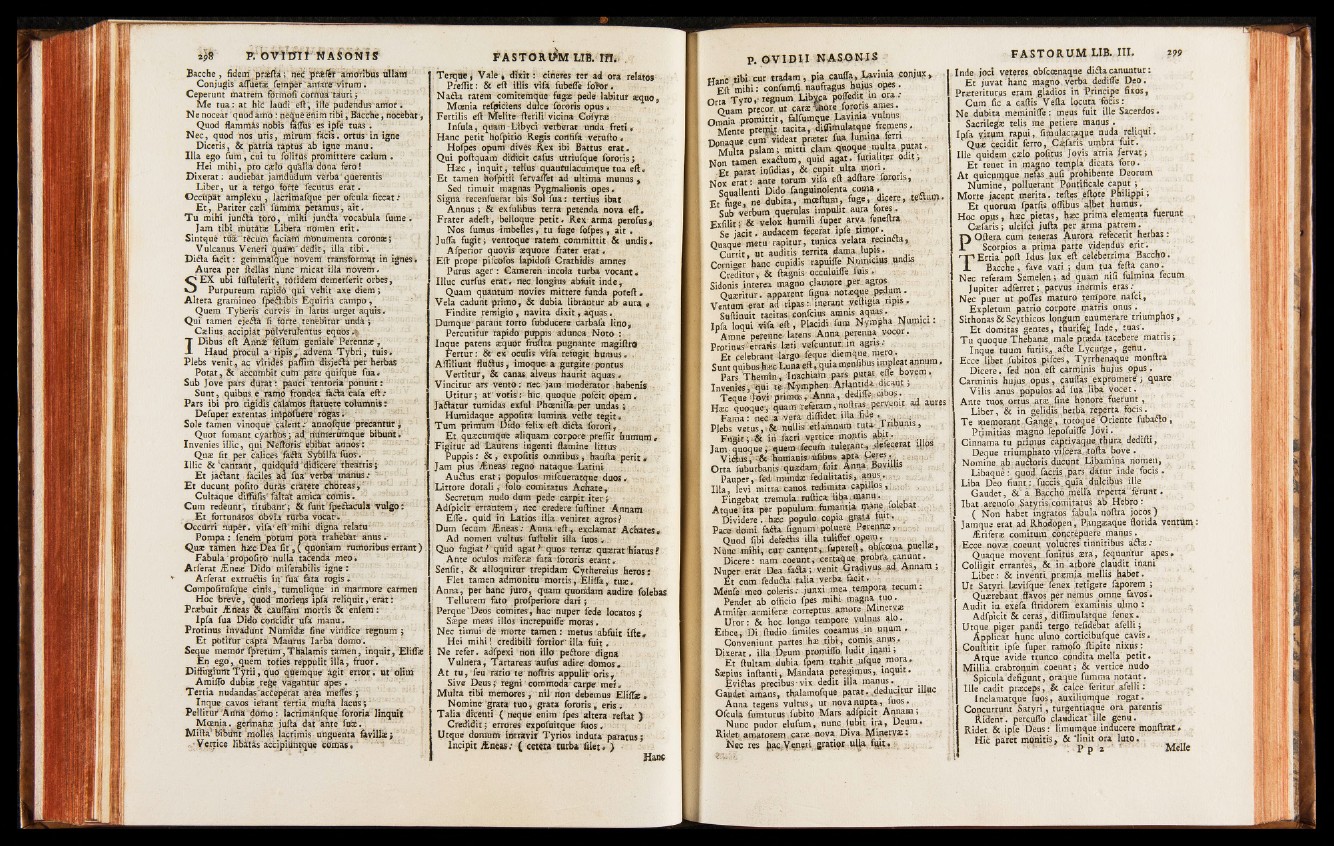 298 P. OVIDII NASONIS
Bacche, fidem præsta; nec præfer amoribus ullam
Conjugis assuetæ semper amare virum.
Ceperunt matrem formosi cornua tauri;
Me tua: at hic laudi est, ille pudendus amor.
Ne noceat quod amo: neque enim tibi, Bacche, nocebat,
Quod flammas nobis fassus es ipse tuas.
Nec, quod nos uris, mirum facis. ortus in igne
Diceris, & patria raptus ab igne manu.
Illa ego sum, cui tu solitus promittere cælum.
Hei mihi, pro cælo qualia dona fero!
Dixerat: audiebat jamdudum verba querentis
Liber, ut a tergo forte secutus erat.
Occupat amplexu, lacrimasque per oscula siccat:
Et, Pariter cæli summa petamus, ait.
Tu mihi juncta toro, mihi juncta vocabula sume.
Jam tibi mutatæ Libera nomen erit.
Sintque tuæ tecum faciam monumenta coronæ;
Vulcanus Veneri quam dedit, illa tibi.
Dicta facit: gemmasque novem transformat in ignes.
Aurea per stellas nunc micat illa novem.
SEX ubi sustulerit, totidem demerserit orbes,
Purpureum rapido qui vehit axe diem;
Altera gramineo spectabis Equiria campo,
Quem Tyberis curvis in latus urget aquis.
Qui tamen ejecta si forte tenebitur unda;
Cælius accipiat pulverulentus equos.
IDibus est Annæ festum geniale Perennæ,
Haud procul a ripis, advena Tybri, tuis.
Plebs venit, ac virides passim disjecta per herbas
Potat, & accumbit cum pare quisque sua.
Sub Jove pars durat: pauci tentoria ponunt:
Sunt, quibus e ramo frondea facta casa est:
Pars ibi pro rigidis calamos statuere columnis:
Desuper extentas imposuere togas.
Sole tamen vinoque calent: annosque precantur,
Quot sumant cyathos; ad numerumque bibunt.
Invenies illic, qui Nestoris ebibat annos:
Quæ sit per calices facta Sybilla suos.
Illic & cantant, quidquid didicere theatris;
Et jactant faciles ad sua verba manus:
Et ducunt posito duras cratere choreas,
Cultaque diffusis saltat amica comis.
Cum redeunt, titubant; & sunt spectacula vulgo:
Et fortunatos obvia turba vocat.
Occurri nuper. visa est mihi digna relatu
Pompa: senem potum pota trahebat anus.
Quæ tamen hæc Dea sit, (quoniam rumoribus errant)
Fabula proposito nulla tacenda meo.
Arserat Æneæ Dido miserabilis igne:
Arserat exructis in sua fata rogis.
Compositusque cinis, tumulique in marmore carmen
Hoc breve, quod moriens ipsa reliquit, erat:
Præbuit Æneas & caussam mortis & ensem:
Ipsa sua Dido concidit usa manu.
Protinus invadunt Numidæ sine vindice regnum;
Et potitur capta Maurus Iarba domo.
Seque memor spretum, Thalamis tamen, inquit, Elissæ
En ego, quem toties reppulit illa, fruor.
Diffugiunt Tyrii, quo quemque agit error. ut olim
Amisso dubiæ rege vagantur apes.
Tertia nudandas acceperat area messes;
Inque cavos ierant tertia musta lacus;
Pellitur Anna domo: lacrimansque sororia linquit
Mœnia. germanæ justa dat ante suæ.
Mista bibunt molles lacrimis unguenta favillæ;
Vertice libatas accipiuntque comas.
FASTORUM LIB. III.
Terque, Vale, dixit: cineres ter ad ora relatos
Pressit: & est illis visa subesse soror.
Nacta ratem comitemque fugæ pede labitur æquo,
Mœnia respiciens dulce sororis opus.
Fertilis est Melite sterili vicina Cosyræ
Insula, quam Libyci verberat unda freti.
Hanc petit hospitio Regis confisa vetusto.
Hospes opum dives Rex ibi Battus erat.
Qui postquam didicit casus utriusque sororis;
Hæc, inquit, tellus quantulacumque tua est.
Et tamen hospitii servasset ad ultima munus,
Sed timuit magnas Pygmalionis opes.
Signa recensuerat bis Sol sua: tertius ibat
Annus; & exsilibus terra petenda nova est.
Frater adest, belloque petit. Rex arma perosus,
Nos sumus imbelles, tu fuge sospes, ait.
Jussa fugit; ventoque ratem committit & undis.
Asperior quovis æquore frater erat.
Est prope piscosos lapidosi Crathidis amnes
Purus ager: Cameren incola turba vocant.
Illuc cursus erat. nec longius abfuit inde,
Quam quantum novies mittere funda potest.
Vela cadunt primo, & dubia librantur ab aura.
Findite remigio, navita dixit, aquas.
Dumque parant torto subducere carbasa lino,
Percutitur rapido puppis adunca Noto:
Inque patens æquor frustra pugnante magistro
Fertur: & ex oculis visa refugit humus.
Assiliunt fluctus, imoque a gurgite pontus
Vertitur, & canas alveus haurit aquas.
Vincitur ars vento: nec jam moderator habenis
Utitur; at votis: hic quoque poscit opem.
Jactatur tumidas exsul Phœnissa per undas;
Humidaque apposita lumina veste tegit.
Tum primum Dido felix est dicta sorori,
Et quæcumque aliquam corpore pressit humum.
Figitur ad Laurens ingenti flamine littus
Puppis: &, expositis omnibus, hausta perit.
Jam pius Æneas regno nataque Latini
Auctus erat; populos miscueratque duos.
Littore dotali, solo comitatus Achate,
Secretum nudo dum pede carpit iter;
Adspicit errantem, nec credere sustinet Annam
Esse. quid in Latios illa veniret agros?
Dum secum Æneas: Anna est, exclamat Achates.
Ad nomen vultus sustulit illa suos.
Quo fugiat? quid agat? quos terræ quærat hiatus?
Ante oculos miseræ fata sororis erant.
Sensit, & alloquitur trepidam Cythereius heros:
Flet tamen admonitu mortis, Elissa, tuæ.
Anna, per hanc juro, quam quondam audire solebas
Tellurem fato prosperiore dari;
Perque Deos comites, hac nuper sede locatos;
Sæpe meas illos increpuisse moras.
Nec timui de morte tamen: metus abfuit iste.
Hei mihi! credibili fortior illa fuit.
Ne refer. adspexi non illo pectore digna
Vulnera, Tartareas ausus adire domos.
At tu, seu ratio te nostris appulit oris,
Sive Deus; regni commoda carpe mei.
Multa tibi memores, nil non debemus Elissæ.
Nomine grata tuo, grata sororis, eris.
Talia dicenti (neque enim spes altera restat)
Credidit; errores exposuitque suos.
Utque domum intravit Tyrios induta paratus;
Incipit Æneas: (cetera turba silet.)
Hanc
P. OVIDII NASONIS
Hanc tibi cur tradam, pia caussa, Lavinia conjux,
Est mihi: consumsi naufragus hujus opes.
Orta Tyro, regnum Libyca possedit in ora:
Quam precor ut caræ more sororis ames.
Omnia promittit, falsumque Lavinia vulnus
Mente premit tacita, dissimulatque fremens.
Donaque cum videat præter sua lumina ferri
Multa palam; mitti clam quoque multa putat.
Non tamen exactum, quid agat. furialiter odit;
Et parat insidias, & cupit ulta mori.
Nox erat: ante torum visa est adstare sororis,
Squallenti Dido sanguinolenta coma.
Et fuge, ne dubita, mœstum, fuge, dicere, tectum.
Sub verbum querulas impulit aura fores.
Exsilit; & velox humili super arva fenestra
Se jacit. audacem fecerat ipse timor.
Quaque metu rapitur, tunica velata recincta,
Currit, ut auditis territa dama lupis.
Corniger hanc cupidis rapuisse Numicius undis
Creditur, & stagnis occuluisse suis.
Sidonis interea magno clamore per agros
Quæritur. apparent signa notæque pedum.
Ventum erat ad ripas: inerant vestigia ripis.
Sustinuit tacitas conscius amnis aquas.
Ipsa loqui visa est, Placidi sum Nympha Numici:
Amne perenne latens Anna perenna vocor.
Protinus erratis læti vescuntur in agris:
Et celebrant largo seque diemque mero.
Sunt quibus hæc Luna est, quia mensibus impleat annum.
Pars Themin, Inachiam pars putat esse bovem.
Invenies, qui te Nymphen Atlantida dicant;
Teque Jovi primos, Anna, dedisse cibos.
Hæc quoque, quam referam, nostras pervenit ad aures
Fama: nec a vera dissidet illa fide.
Plebs vetus, & nullis etiamnum tuta Tribunis,
Fugit; & in sacri vertice montis abit.
Jam quoque, quem secum tulerant, defecerat illos
Victus, & humanis usibus apta Ceres.
Orta suburbanis quædam fuit Anna Bovillis
Pauper, sed mundæ sedulitatis, anus.
Illa, levi mitra canos redimita capillos,
Fingebat tremula rustica liba manu.
Atque ita per populum fumantia mane solebat
Dividere. hæc populo copia grata fuit.
Pace domi facta signum posuere Perennæ,
Quod sibi defectis illa tulisset opem.
Nunc mihi, cur cantent, superest, obscœna puellæ,
Dicere: nam coeunt, certaque probra canunt.
Nuper erat Dea facta; venit Gradivus ad Annam;
Et cum seducta talia verba facit.
Mense meo coleris: junxi mea tempora tecum:
Pendet ab officio spes mihi magna tuo.
Armifer armiferæ correptus amore Minervæ
Uror: & hoc longo tempore vulnus alo.
Effice, Di studio similes coeamus in unum.
Conveniunt partes hæ tibi, comis anus.
Dixerat. illa Deum promisso ludit inani;
Et stultam dubia spem trahit usque mora.
Sæpius instanti, Mandata peregimus, inquit.
Evictas precibus vix dedit illa manus.
Gaudet amans, thalamosque parat. deducitur illuc
Anna tegens vultus, ut nova nupta, suos.
Oscula sumturus subito Mars adspicit Annam;
Nunc pudor elusum, nunc subit ira, Deum.
Ridet amatorem caræ nova Diva Minervæ:
Nec res hac Veneri gratior ulla fuit.
FASTORUM LIB. III. 299
Inde joci veteres obscœnaque dicta canuntur:
Et juvat hanc magno verba dedisse Deo.
Præteriturus eram gladios in Principe fixos,
Cum sic a castis Vesta locuta focis:
Ne dubita meminisse; meus fuit ille Sacerdos.
Sacrilegæ telis me petiere manus.
Ipsa virum rapui, simulacraque nuda reliqui.
Quæ cecidit ferro, Cæsaris umbra fuit.
Ille quidem cælo positus Jovis atria servat;
Et tenet in magno templa dicata foro.
At quicumque nefas ausi prohibente Deorum
Numine, polluerant Pontificale caput;
Morte jacent merita. testes estote Philippi;
Et quorum sparsis ossibus albet humus.
Hoc opus, hæc pietas, hæc prima elementa fuerunt
Cæsaris; ulcisci justa per arma patrem.
POstera cum teneras Aurora refecerit herbas:
Scorpios a prima parte videndus erit.
TErtia post Idus lux est celeberrima Baccho.
Bacche, fave vati; dum tua festa cano.
Nec referam Semelen; ad quam nisi fulmina secum
Jupiter adferret; parvus inermis eras:
Nec puer ut posses maturo tempore nasci,
Expletum patrio corpore matris onus.
Sithonas & Scythicos longum enumerare triumphos,
Et domitas gentes, thurifer Inde, tuas.
Tu quoque Thebanæ male præda tacebere matris;
Inque tuum furiis, acte Lycurge, genu.
Ecce libet subitos pisces, Tyrrhenaque monstra
Dicere. sed non est carminis hujus opus.
Carminis hujus opus, caussas expromere; quare
Vilis anus populos ad sua liba vocet.
Ante tuos ortus aræ sine honore fuerunt,
Liber, & in gelidis herba reperta focis.
Te memorant Gange, totoque Oriente subacto,
Primitias magno seposuisse Jovi.
Cinnama tu primus captivaque thura dedisti,
Deque triumphato viscera tosta bove.
Nomine ab auctoris ducunt Libamina nomen,
Libaque: quod sacris pars datur inde focis.
Liba Deo fiunt: succis quia dulcibus ille
Gaudet, & a Baccho mella reperta ferunt.
Ibat arenoso Satyris comitatus ab Hebro:
(Non habet ingratos fabula nostra jocos)
Jamque erat ad Rhodopen, Pangæaque florida ventum:
Æriferæ comitum concrepuere manus.
Ecce novæ coeunt volucres tinnitibus actæ:
Quaque movent sonitus æra, sequuntur apes.
Colligit errantes, & in arbore claudit inani
Liber: & inventi præmia mellis habet.
Ut Satyri lævisque senex tetigere saporem;
Quærebant flavos per nemus omne favos.
Audit in exesa stridorem examinis ulmo:
Adspicit & ceras, dissimulatque senex.
Utque piger pandi tergo residebat aselli;
Applicat hunc ulmo corticibusque cavis.
Constitit ipse super ramoso stipite nixus:
Atque avide trunco condita mella petit.
Millia crabronum coeunt; & vertice nudo
Spicula defigunt, oraque summa notant.
Ille cadit præceps, & calce feritur aselli:
Inclamatque suos, auxiliumque rogat.
Concurrunt Satyri, turgentiaque ora parentis
Rident. percusso claudicat ille genu.
Ridet & ipse Deus: limumque inducere monstrat.
Hic paret monitis, & linit ora luto.
Pp 2 Melle